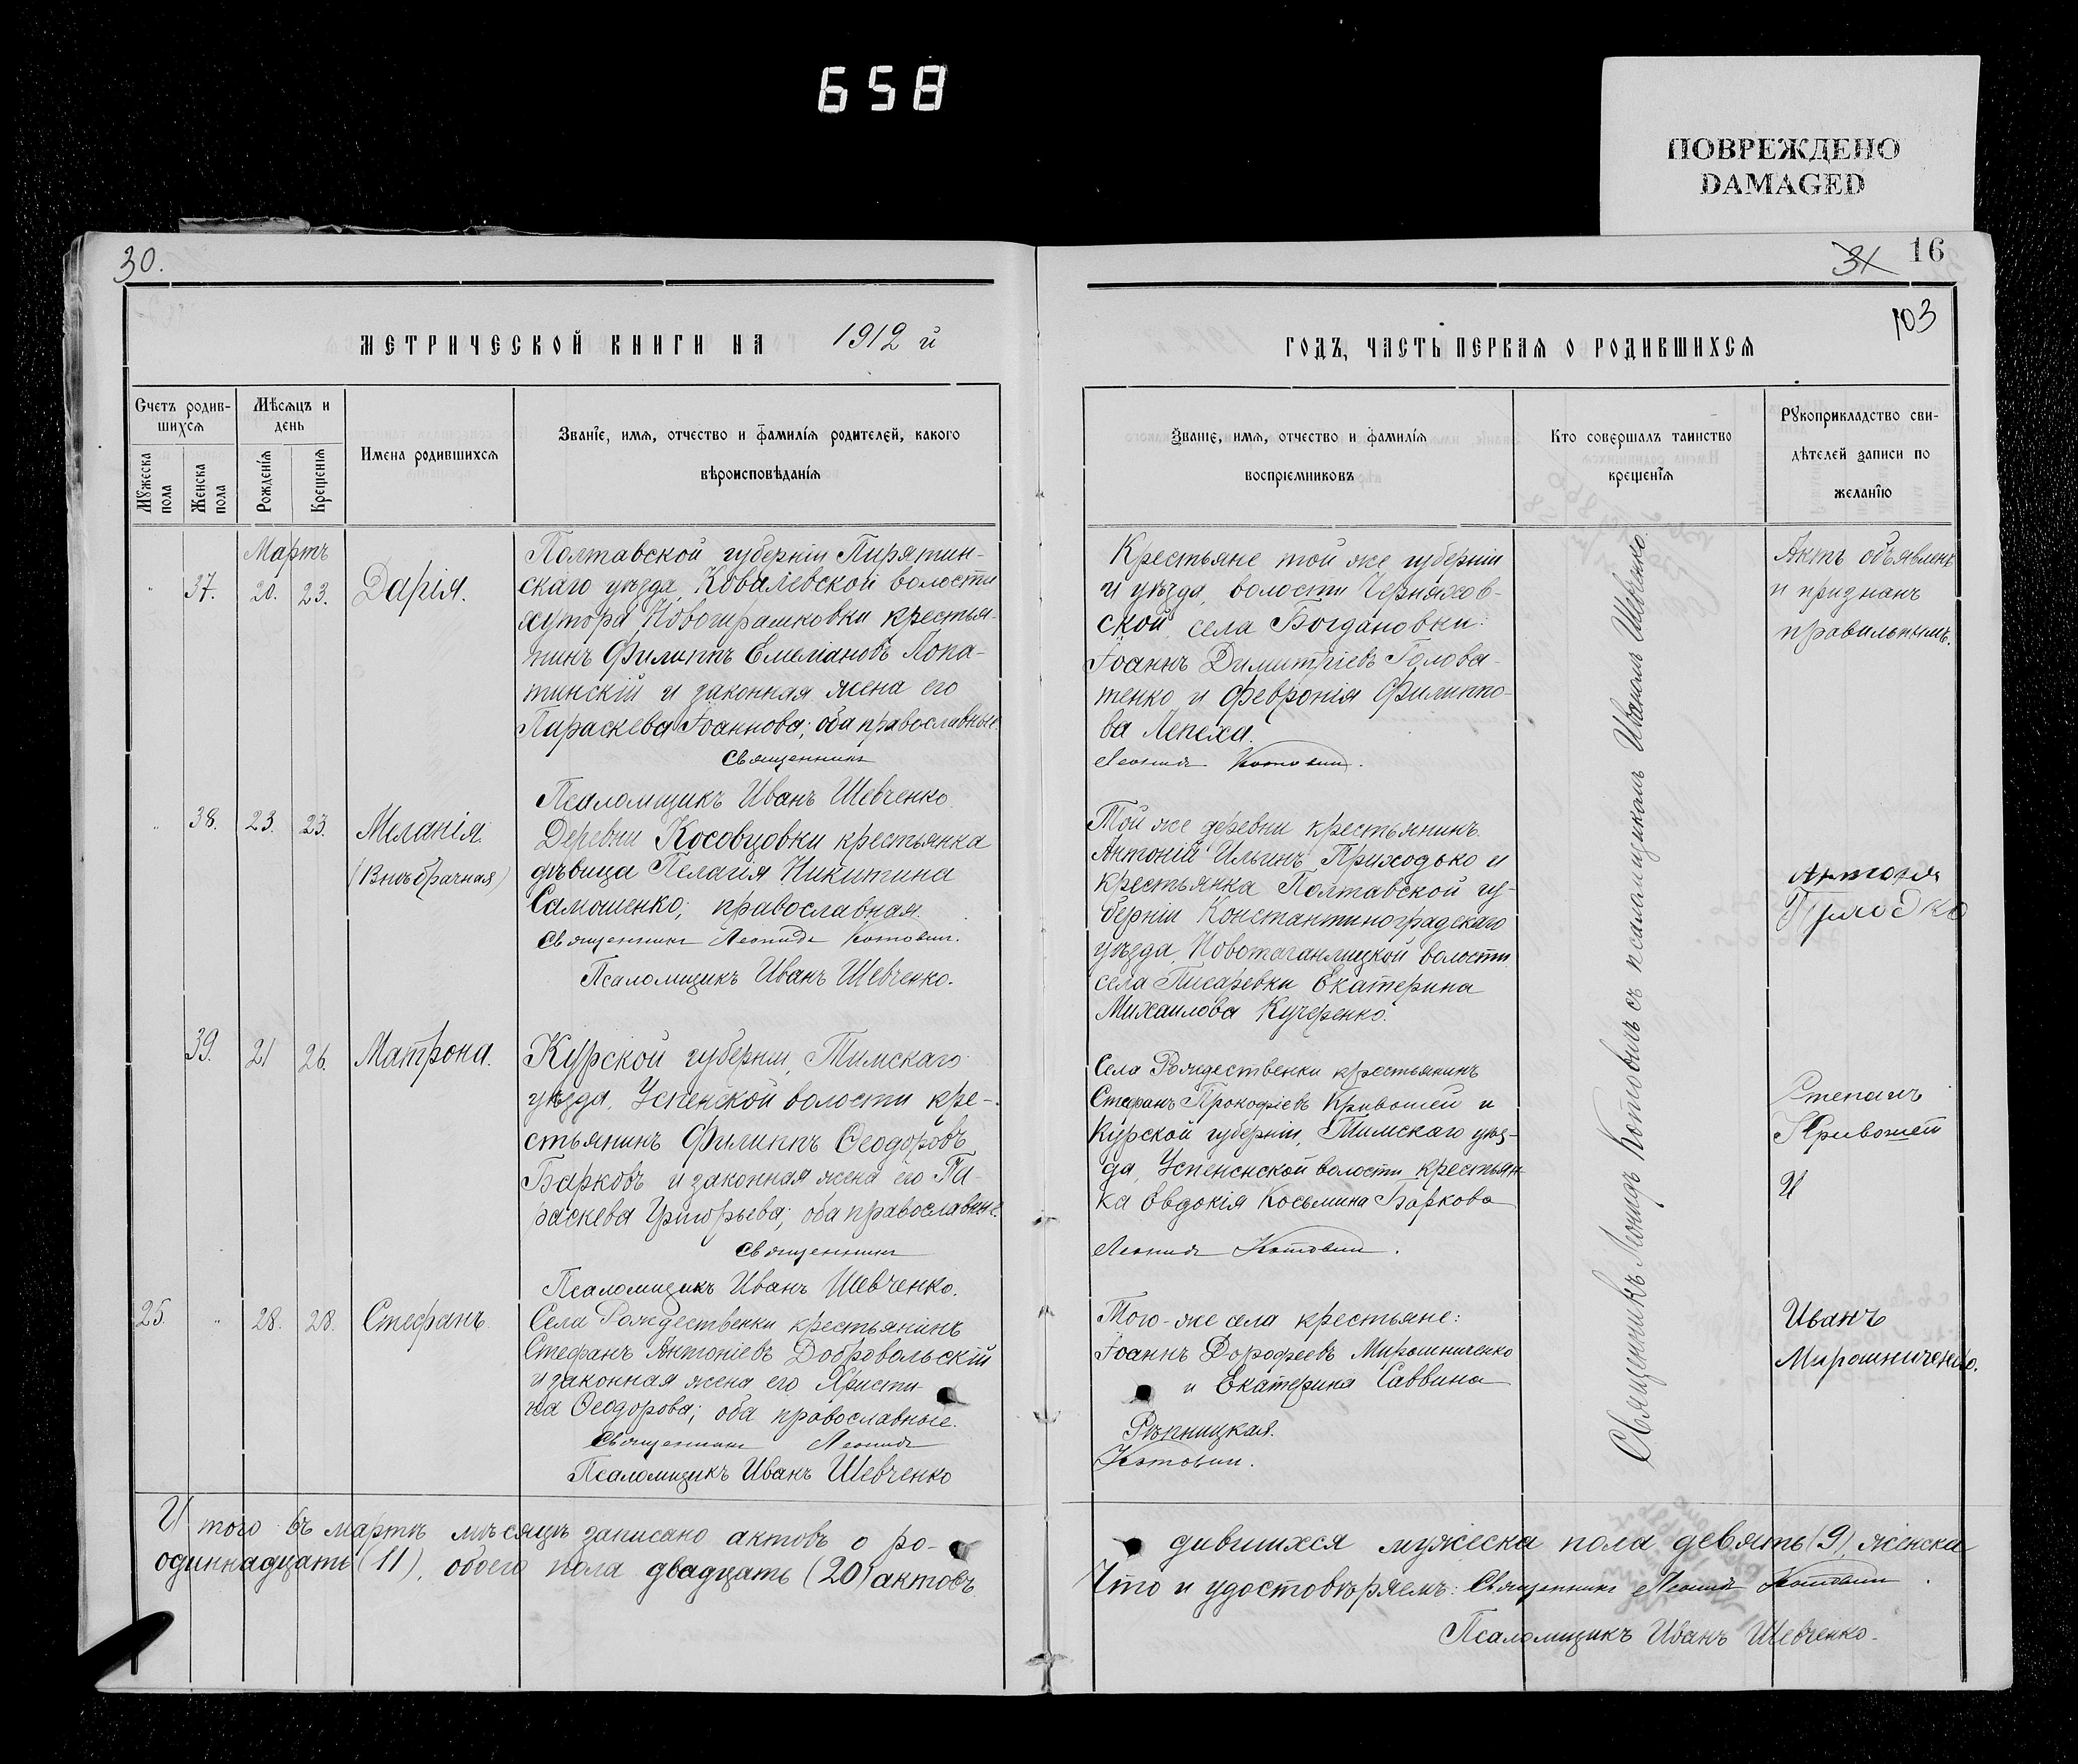 658
ПОВРЕЖДЕНО
DAMAGED
30.
31
16
103
МЕТРИЧЕСКОЙ КНИГИ НА 1912 й
ГОДЪ, ЧАСТЬ ПЕРВАЯ О РОДИВШИХСЯ
Счетъ родив-
шихся
Мужеска пола
Женска пола
Мѣсяцъ и
день
Рожденія
Крещенія
Имена родившихся
Званіе, имя, отчество и фамилія родителей, какого
вѣроисповѣданія
Званіе, имя, отчество и фамилія
воспріемниковъ
Кто совершалъ таинство
крещенія
Рукоприкладство сви-
дѣтелей записи по
желанію
Мартъ
37. 20. 23. Дарія.
Полтавской губерніи Пирятин-
скаго уѣзда, Ковалевской волости
хутора крестья-
нинъ Филиппъ Емеліановъ Лопа-
тинскій и законная жена его
Параскева Іоаннова; оба православные.
Священникъ
Псаломщикъ Иванъ Шевченко.
Крестьяне той же губерніи
и уѣзда, волости Черняхов-
ской, села Богдановки:
Іоаннъ Димитріевъ Голова-
тенко и Февронія Филиппо-
ва Лепеха.
Леонидъ Котовичъ.
Актъ объявленъ
и признанъ
правильнымъ.
38. 23. 23. Меланія.
(Внѣбрачная)
Деревни Косовцовки крестьянка
дѣвица Пелагія Никитина
Самошенко; православная.
Священникъ Леонидъ Котовичъ.
Псаломщикъ Иванъ Шевченко.
Той же деревни крестьянинъ
Антоній Ильинъ Приходько и
крестьянка Полтавской гу-
берніи Константиноградскаго
уѣзда, волости
села Писаревки Екатерина
Михаилова Кучеренко.
39. 21 26. Матрона.
Курской губерніи, Тимскаго
уѣзда, Успенской волости кре-
стьянинъ Филиппъ Ѳеодоровъ
Барковъ и законная жена его Па-
раскева Григорьева; оба православные.
Священникъ
Псаломщикъ Иванъ Шевченко.
Села Рождественки крестьянинъ
Стефанъ Прокофіевъ Кривошей и
Курской губерніи, Тимскаго уѣз-
да, Успенской волости крестьян-
ка Евдокія Косьмина Баркова
Леонидъ Котовичъ.
Степанъ
Кривошей
И
25. 28. 28. Стефанъ
Села Рождественки крестьянинъ
Стефанъ Антоніевъ Добровольскій
и законная жена его Христи-
на Ѳеодорова; оба православные.
Священникъ Леонидъ
Псаломщикъ Иванъ Шевченко
Того-же села крестьяне:
Іоаннъ Дорофеевъ Мирошниченко
и Екатерина Саввина
Рѣпницкая.
Котовичъ.
Иванъ
Мирошниченко.
Священникъ Леонидъ Котовичъ съ псаломщикомъ Иваномъ Шевченко.
И того въ мартѣ мѣсяцѣ записано актовъ о ро-
дившихся мужеска пола девять (9), женска
одиннадцать (11), обоего пола двадцать (20) актовъ.
Что и удостовѣряемъ: Священникъ Леонидъ Котовичъ.
Псаломщикъ Иванъ Шевченко.